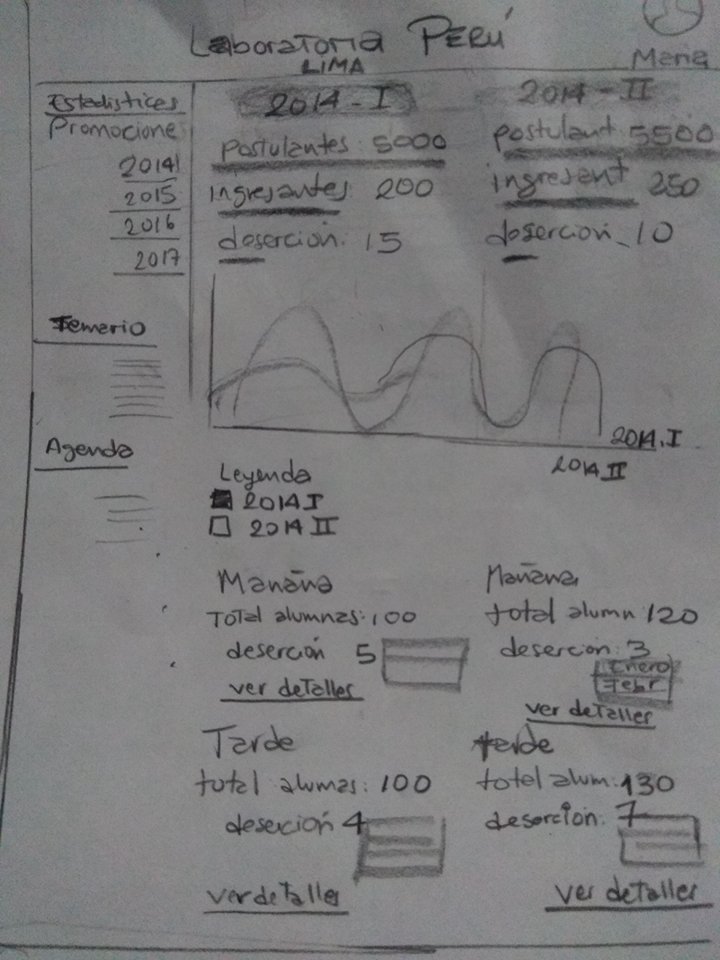 Laboratoria PERÚ
LIMA
Maria
Estadistices
Promocione
2014
2015
2016
2017
Temerio
Agenda
2014-I
Postulantes: 5000
ingresantes 200
deserción: 15
2014-II
postulant 5500
ingresant 250
deserción 10
2014.I
2014 II
Leyenda
2014 I
2014 II
Manãna
Total alumnas: 100
deserción 5
ver detalles
Mañana
total alumn 120
deserción: 3
Enero
Febr
ver detalles
Tarde
total alumas: 100
deserción 4
ver detalles
tarde
total alum: 130
deserción: 7
ver detalles